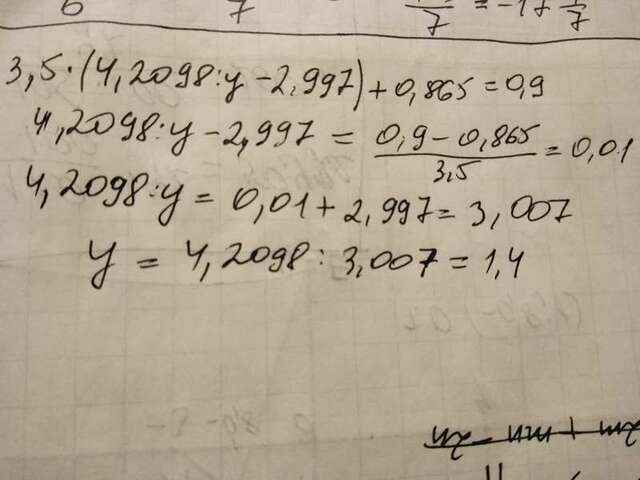 6 7 7 = -17 7/7
3,5·(4,2098:y-2,997)+0,865=0,9
4,2098:y-2,997 = (0,9-0,865)/3,5 = 0,01
4,2098:y = 0,01+2,997=3,007
y = 4,2098:3,007=1,4